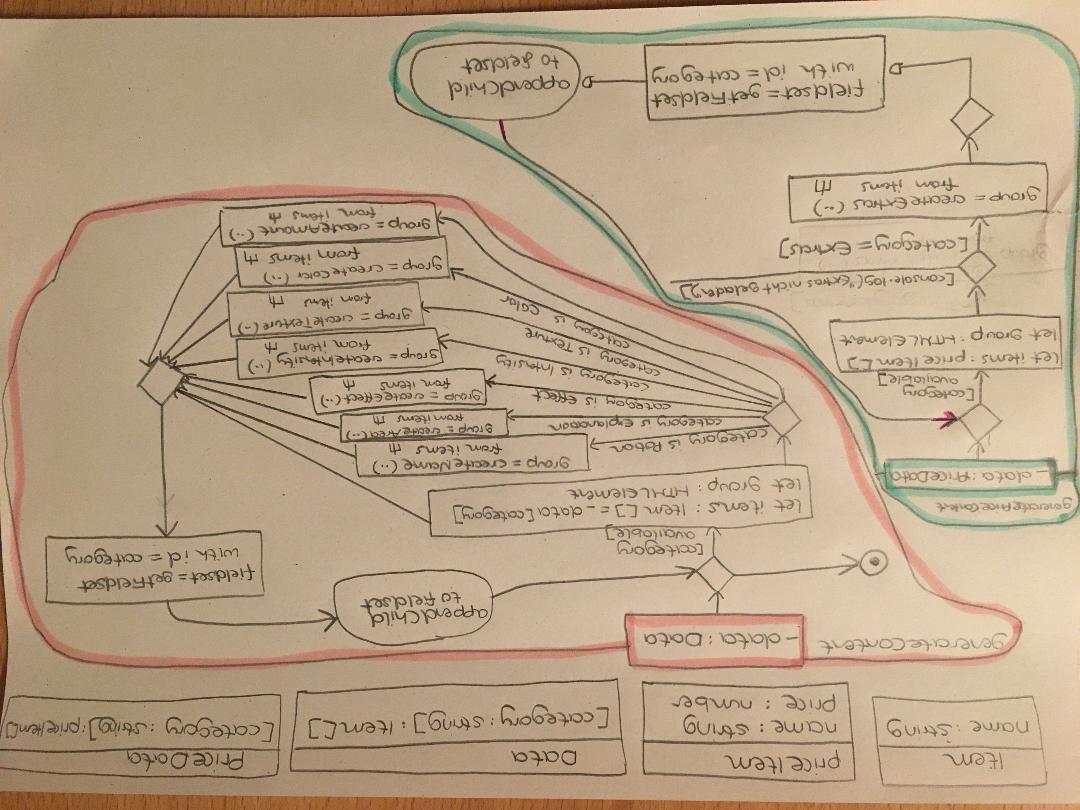 Item
name : string
priceItem
name : string
price : number
Data
[category : string] : Item[]
PriceData
[category : string] : priceItem[]
generateContent
_data : Data
appendChild
to fieldset
fieldset = getFieldset
with id = category
[category
available]
let items : Item [] = _data[category]
let group : HTMLElement
category is Potion
category is Explanation
category is Effect
category is Intensity
category is Texture
category is Color
group = createName (..)
from items
group = createArea(..)
from items
group = createEffect(..)
from items
group = createIntensity (..)
from items
group = createTexture(..)
from item
group = createColor (..)
from items
group = createAmount (..)
from items
generatePriceContent
_data : PriceData
[category
available]
let items : priceItem []
let group : HTMLElement
[console.log("Extras nicht geladen")]
[category = Extras]
group = createExtras (..)
from items
fieldset = getFieldset
with id = category
appendChild
to fieldset